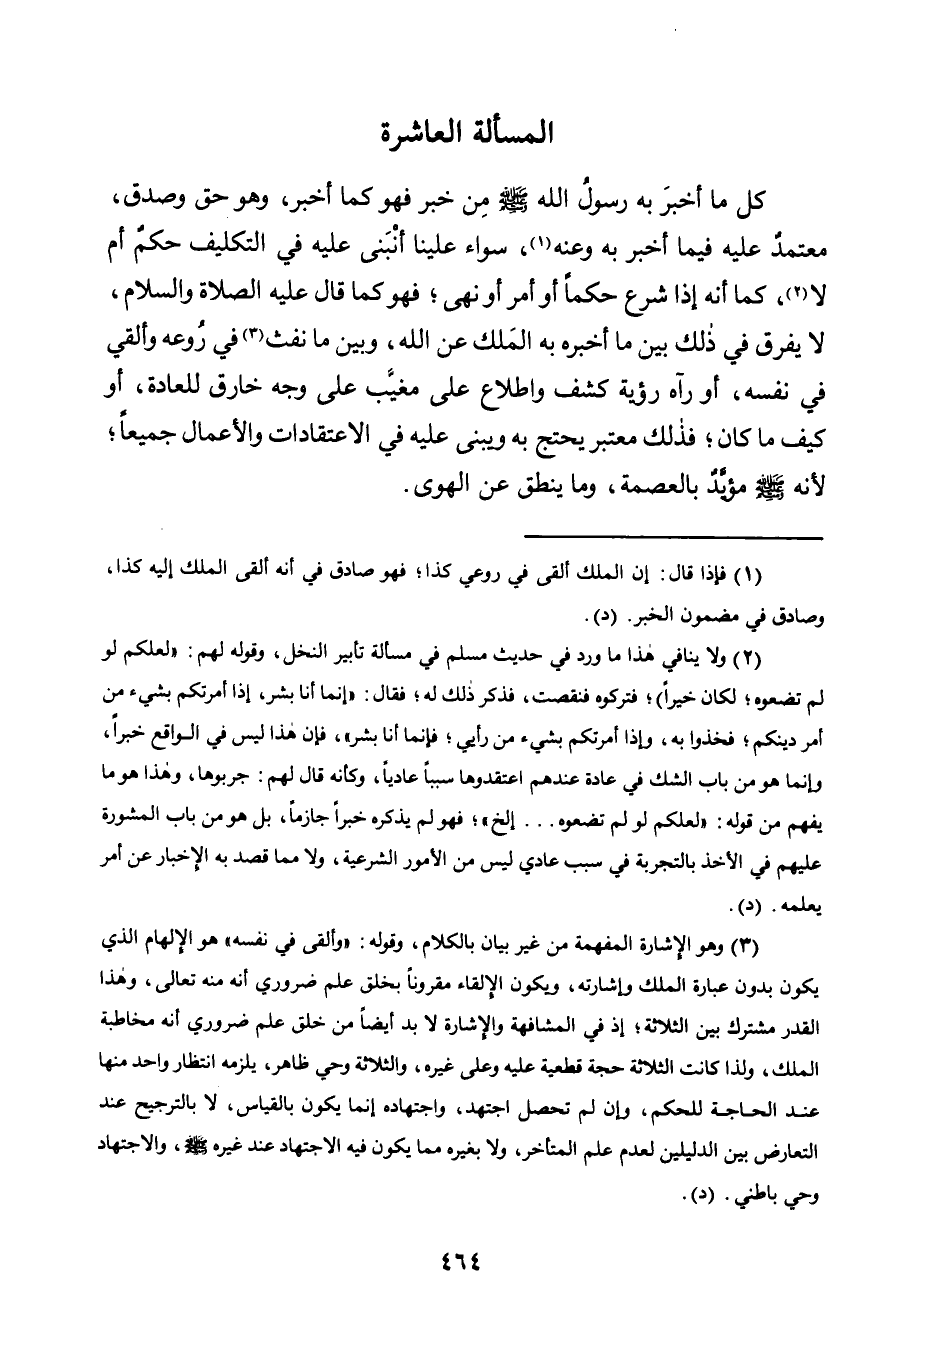 المسألة العاشرة
كل ما أخبرَ به رسولُ الله ﷺ مِن خبر فهو كما أخبر، وهو حق وصدق،
معتمدٌ عليه فيما أخبر به وعنه(١)، سواء علينا أنْبَنى عليه في التكليف حكمٌ أم
لا(٢)، كما أنه إذا شرع حكماً أو أمر أو نهى؛ فهو كما قال عليه الصلاة والسلام،
لا يفرق في ذٰلك بين ما أخبره به المَلك عن الله، وبين ما نفث(٣) في رُوعه وألقي
في نفسه، أو رآه رؤية كشف واطلاع على مغيَّب على وجه خارق للعادة، أو
كيف ما كان؛ فذٰلك معتبر يحتج به ويبنى عليه في الاعتقادات والأعمال جميعاً؛
لأنه ﷺ مؤيَّدٌ بالعصمة، وما ينطق عن الهوى.
(١) فإذا قال: إن الملك ألقى في روعي كذا؛ فهو صادق في أنه ألقى الملك إليه كذا،
وصادق في مضمون الخبر. (د).
(٢) ولا ينافي هٰذا ما ورد في حديث مسلم في مسألة تأبير النخل، وقوله لهم: «لعلكم لو
لم تضعوه؛ لكان خيراً)؛ فتركوه فنقصت، فذكر ذٰلك له؛ فقال: «إنما أنا بشر، إذا أمرتكم بشيء من
أمر دينكم؛ فخذوا به، وإذا أمرتكم بشيء من رأيي؛ فإنما أنا بشر»، فإن هٰذا ليس في الواقع خبراً،
وإنما هو من باب الشك في عادة عندهم اعتقدوها سبباً عادياً، وكأنه قال لهم: جربوها، وهٰذا هو ما
يفهم من قوله: «لعلكم لو لم تضعوه... إلخ»؛ فهو لم يذكره خبراً جازماً، بل هو من باب المشورة
عليهم في الأخذ بالتجربة في سبب عادي ليس من الأمور الشرعية، ولا مما قصد به الإخبار عن أمر
يعلمه. (د).
(٣) وهو الإشارة المفهمة من غير بيان بالكلام، وقوله: «وألقى في نفسه» هو الإلهام الذي
يكون بدون عبارة الملك وإشارته، ويكون الإلقاء مقروناً بخلق علم ضروري أنه منه تعالى، وهٰذا
القدر مشترك بين الثلاثة؛ إذ في المشافهة والإشارة لا بد أيضاً من خلق علم ضروري أنه مخاطبة
الملك، ولذا كانت الثلاثة حجة قطعية عليه وعلى غيره، والثلاثة وحي ظاهر، يلزمه انتظار واحد منها
عند الحاجة للحكم، وإن لم تحصل اجتهد، واجتهاده إنما يكون بالقياس، لا بالترجيح عند
التعارض بين الدليلين لعدم علم المتأخر، ولا بغيره مما يكون فيه الاجتهاد عند غيره ﷺ، والاجتهاد
وحي باطني. (د).
٤٦٤